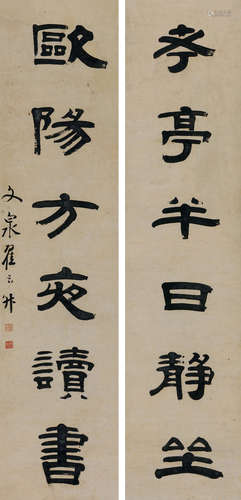 考亭半日靜坐
歐陽方夜讀書
文泉翟云升